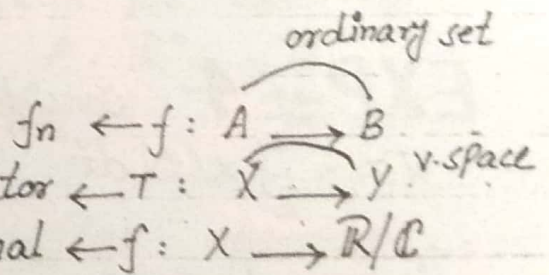 ordinary set
fn ← f : A → B
tor ← T : X → Y v.space
al ← f : X → ℝ/ℂ